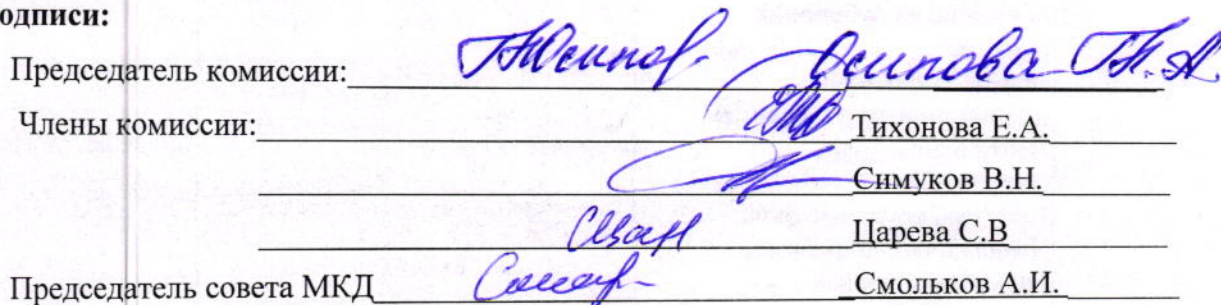 одписи:
Председатель комиссии: Осипова Т.А.
Члены комиссии: Тихонова Е.А.
Симуков В.Н.
Царева С.В
Председатель совета МКД Смольков А.И.